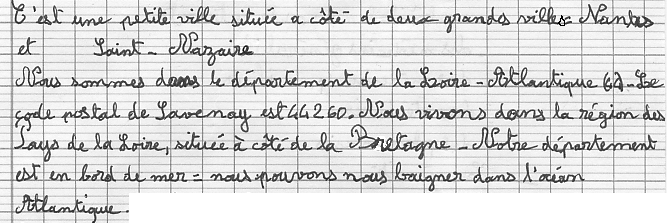 C'est une petite ville située a côté de deux grandes villes = Nantes
et Saint-Nazaire
Nous sommes dans le département de la Loire-Atlantique 44. Le
code postal de Savenay est 44260. Nous vivons dans la région des
Pays de la Loire, située à côté de la Bretagne - Notre département
est en bord de mer = nous pouvons nous baigner dans l'océan
Atlantique.